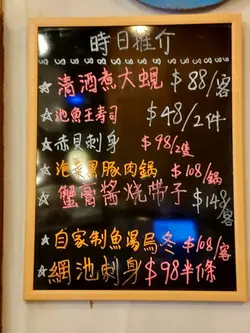 時日推介
☆清酒煮大蜆 $88/客
☆池魚王寿司 $48/2件
☆赤貝刺身 $98/2隻
☆泡菜黑豚肉鍋 $108/鍋
☆蟹膏醬燒帶子 $148/客
☆自家制魚湯烏冬 $108/客
☆網池刺身 $98半條